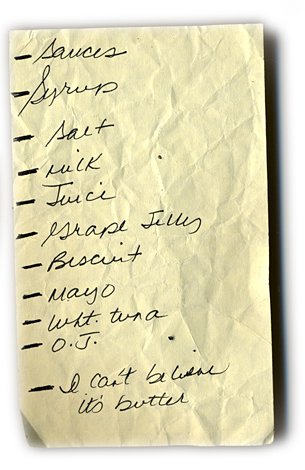 - Sauces
- Syrup
- Salt
- Milk
- Juice
- Grape Jelly
- Biscuit
- Mayo
- Wht. tuna
- O.J.
- I can't believe
it's butter